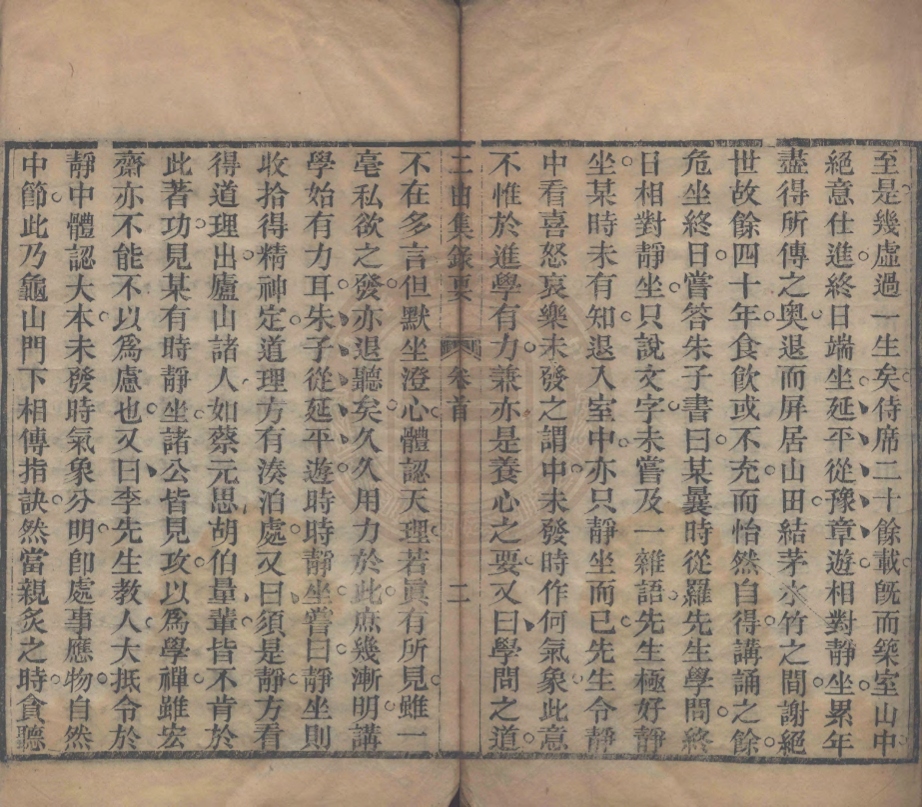 至是幾虛過一生矣侍席二十餘載旣而築室山中
絕意仕進終日端坐延平從豫章遊相對靜坐累年
盡得所傳之奧退而屏居山田結茅水竹之間謝絕
世故餘四十年食飲或不充而怡然自得講誦之餘
危坐終日嘗答朱子書曰某曩時從羅先生學問終
日相對靜坐只說文字未嘗及一雜語先生極好靜
坐某時未有知退入室中亦只靜坐而已先生令靜
中看喜怒哀樂未發之謂中未發時作何氣象此意
不惟於進學有力兼亦是養心之要又曰學問之道
二曲集錄要 卷首 二
不在多言但默坐澄心體認天理若眞有所見雖一
毫私欲之發亦退聽矣久久用力於此庶幾漸明講
學始有力耳朱子從延平遊時時靜坐嘗曰靜坐則
收拾得精神定道理方有湊泊處又曰須是靜方看
得道理出廬山諸人如蔡元思胡伯量輩皆不肯於
此著功見某有時靜坐諸公皆見攻以爲學禪雖宏
齋亦不能不以爲慮也又曰李先生教人大抵令於
靜中體認大本未發時氣象分明卽處事應物自然
中節此乃龜山門下相傳指訣然當親炙之時貪聽